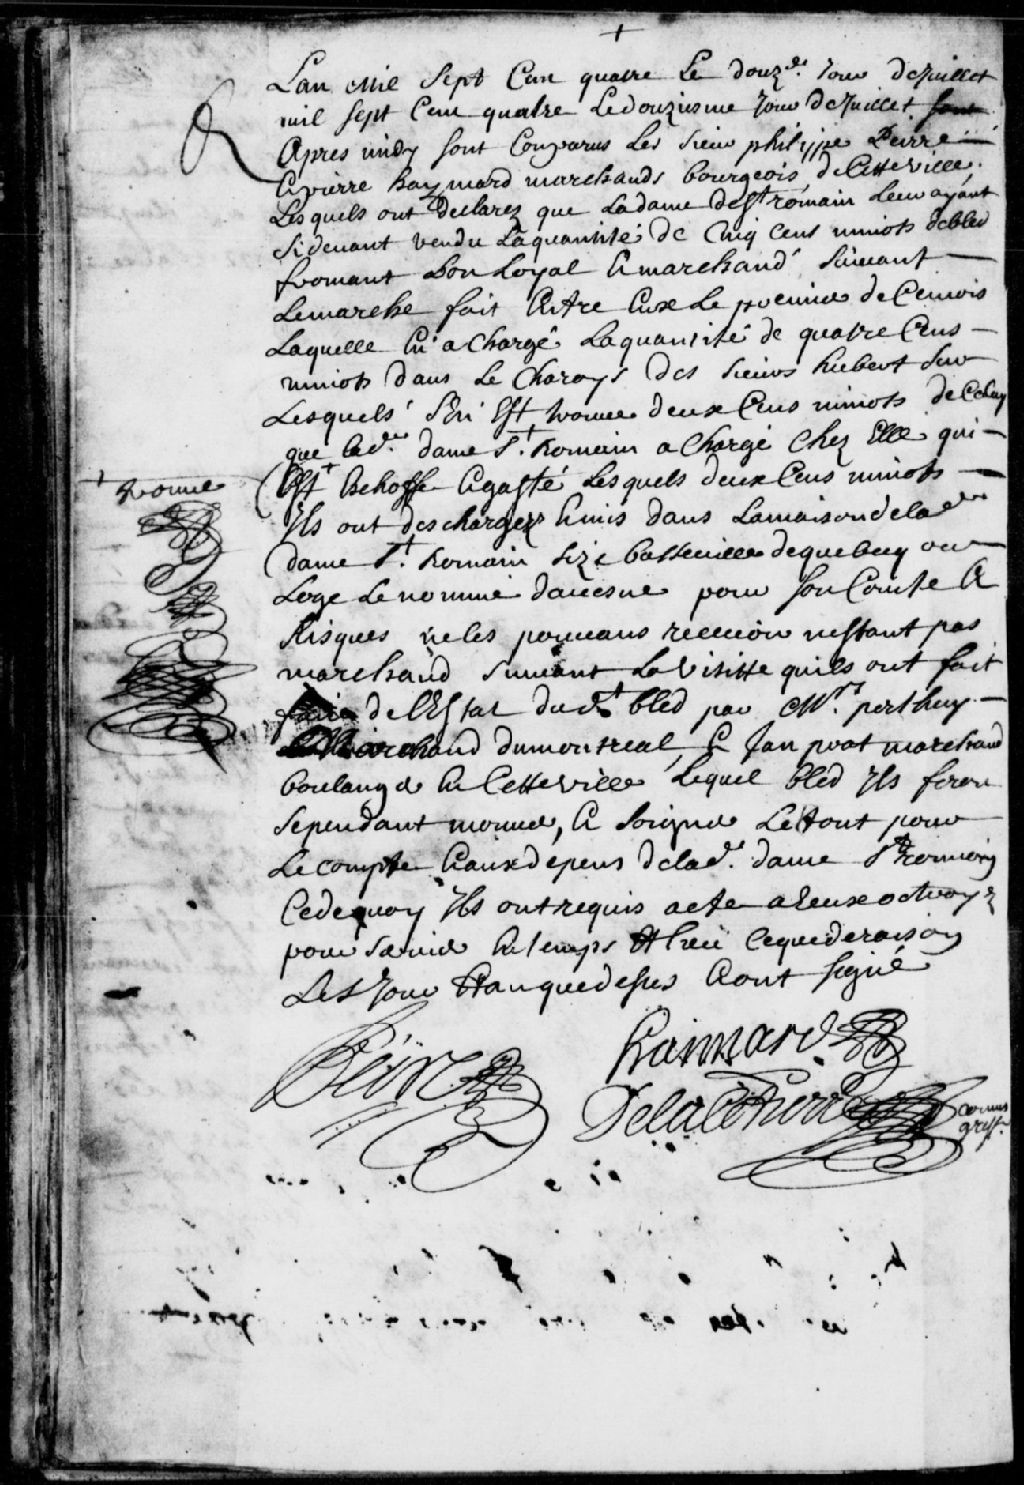 Lan mil sept Cens quatre Le douz.e Jour de Juillet
mil sept Cens quatre Ledouziesme Jour de Juillet
Apres midy sont Comparus Les sieurs philippe Peirre
& pierre haymard marchands bourgeois de Cette ville
Lesquels ont declarez que Ladame de St romain Leur ayant
sidevant vendu Laquantité de Cinq Cens minots debled
fromant bon Loyal & marchand suivant
Lemarché fait Entre Eux Le premier de Cemois
Laquelle En a Chargé Laquantité de quatre Cens
minots dans Le Charoys des sieurs hubert sur
Lesquels s'En Est trouvé deux Cens minots de Celuy
que lad. dame St. Romain a Chargé Chez Elle qui
Est Echoffe & gasté Lesquels deux Cens minots
Ils ont deschargez & mis dans Lamaison delad.
dame St. Romain size basseville de quebecq ou
Loge Le nommé davesne pour son Compte &
Risques ne les pouvans recevoir nestant pas
marchand suivant La Visitte quils ont fait
faire de l'Estat dud. bled par Mr. perthuy
Marchand du montreal & Jan prat marchand
boulanger En Cette ville, Lequel bled Ils feron
sependant mouver, & soigner Letout pour
Le compte & aux depens delad. dame St romain
Cedequoy Ils ont requis acte a Eux octroyé
pour servir En temps Et lieu Cequederaison
Les Jour Et an que dessus & ont signé
trouvé
Peire
haimard
Delacetiere
commis
greff.